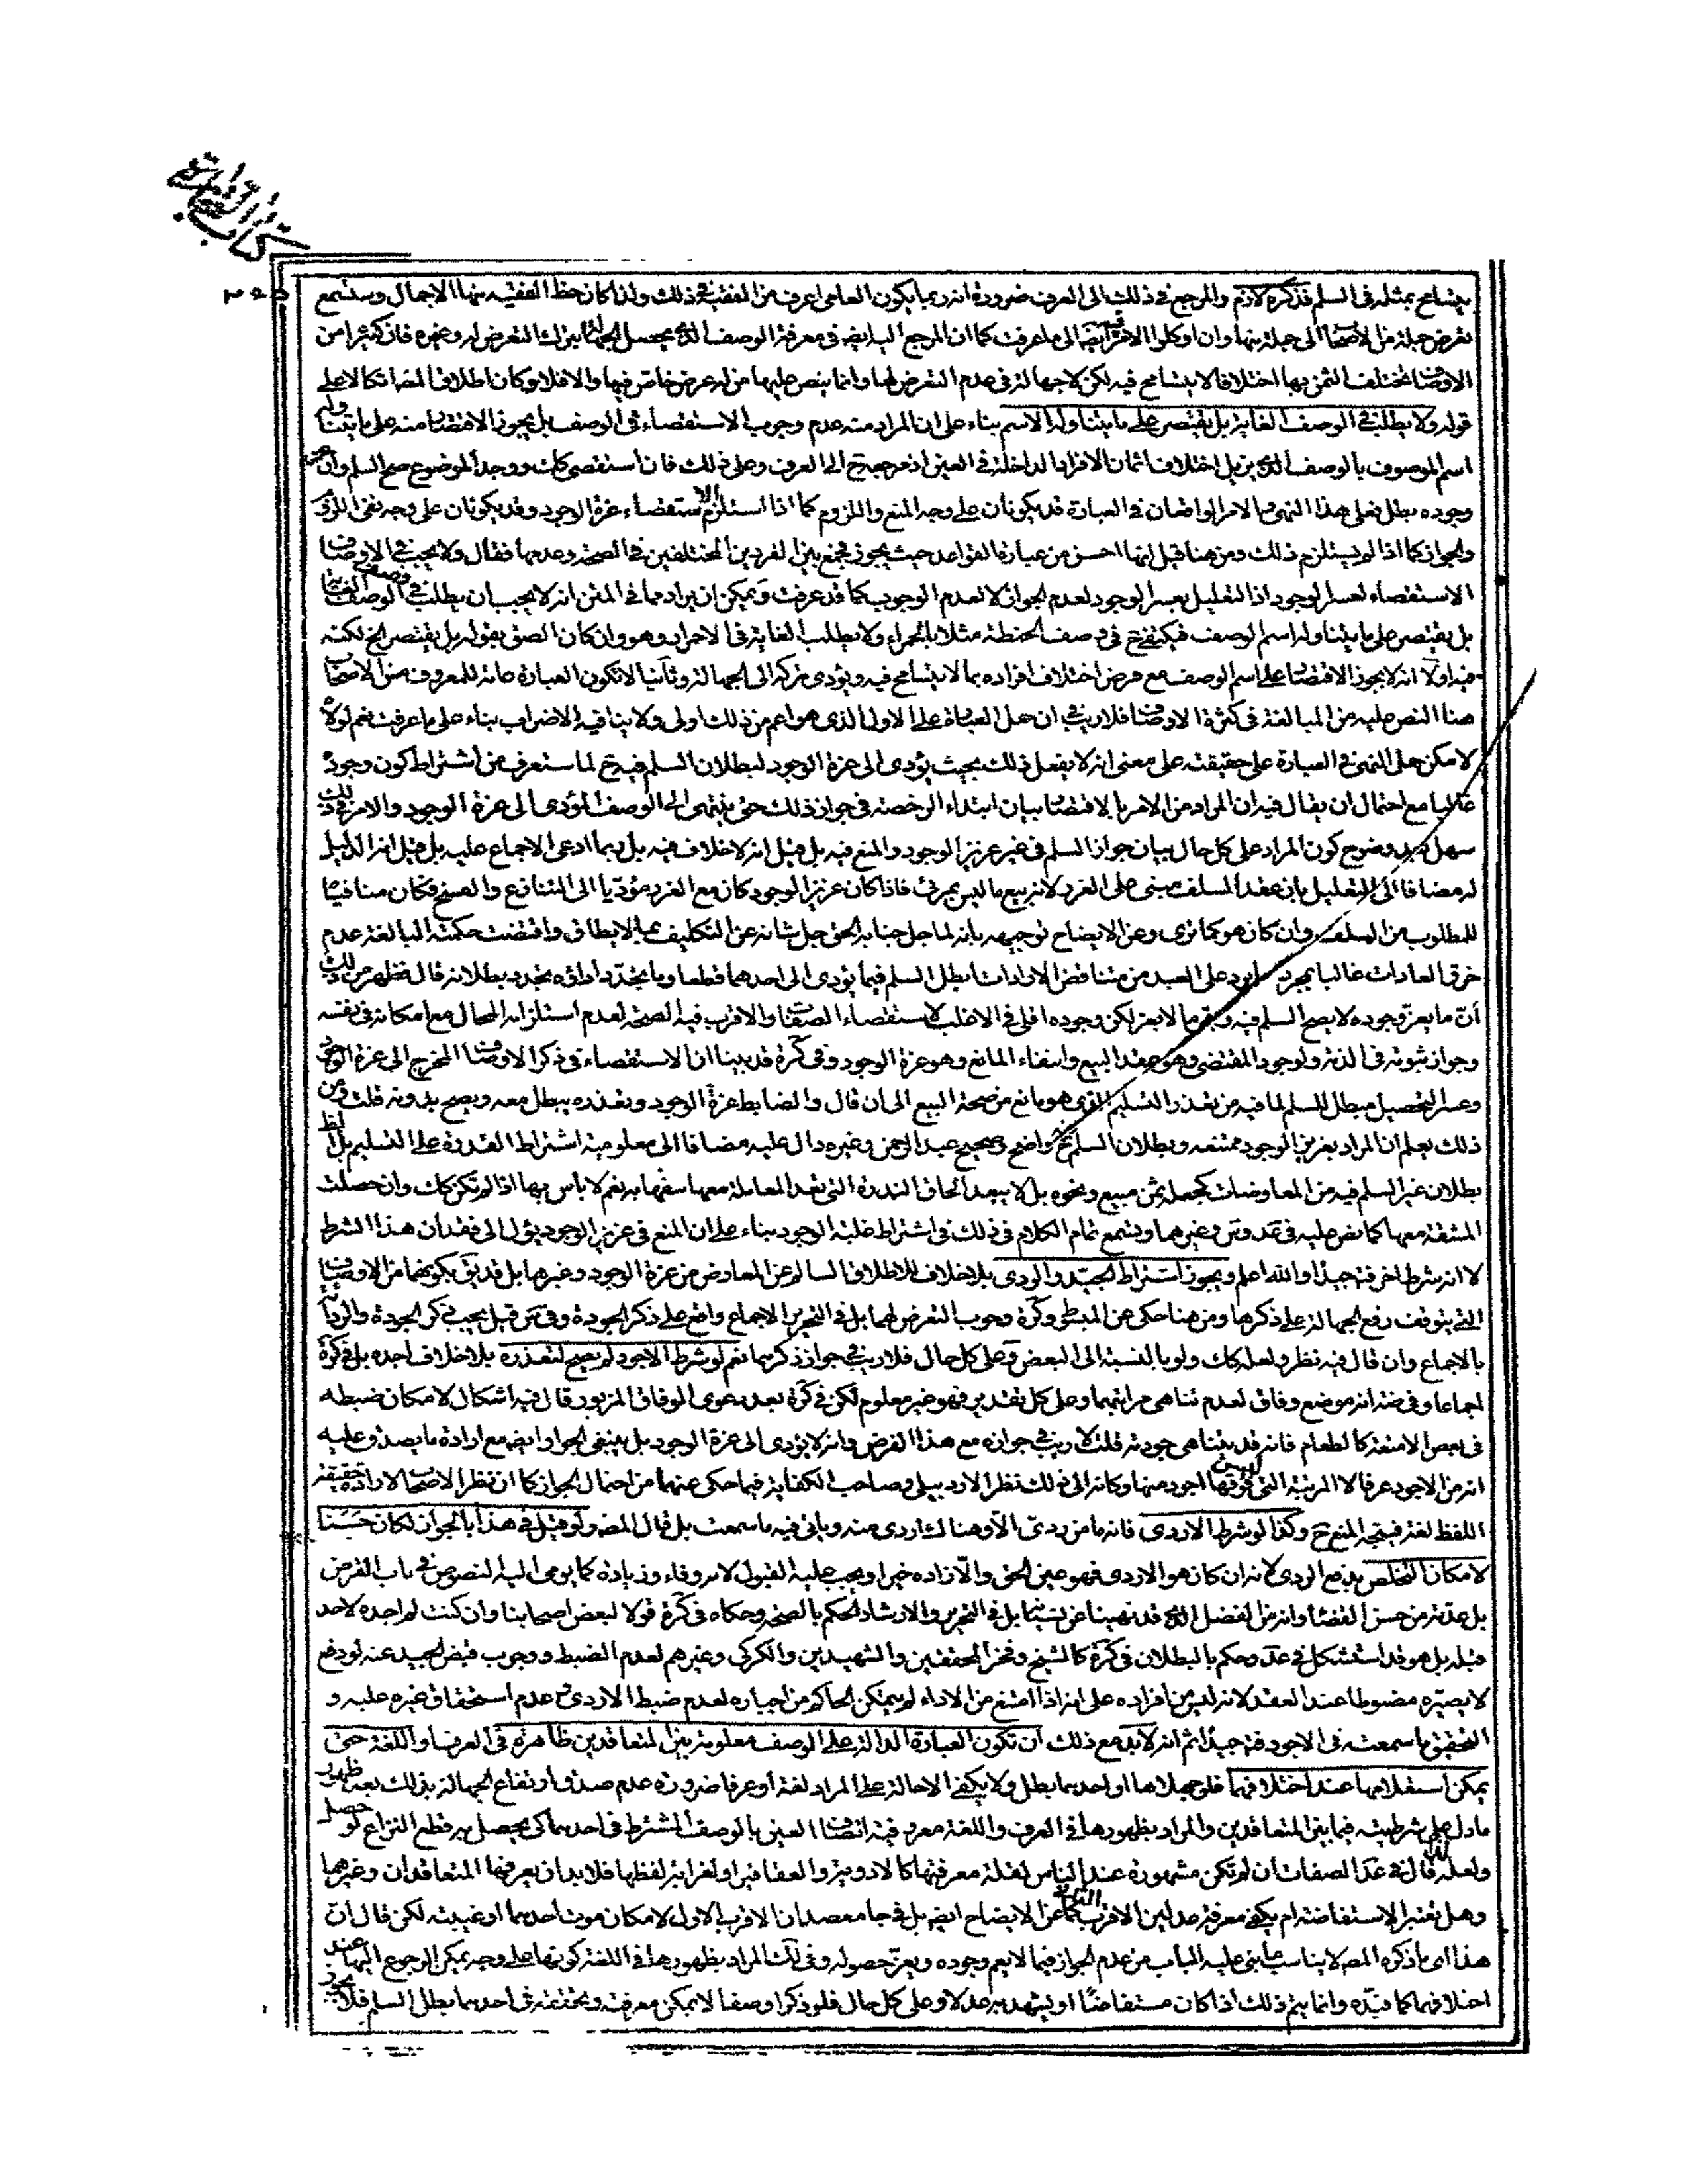 كتاب التجارة
يتسامح بمثله في السلم فذكره لازم والمرجع في ذلك الى العرف ضرورة انه ربما يكون العامي اعرف من الفقيه في ذلك ولذا كان حظ الفقيه منها الاجمال وستسمع
تعرض جملة من الأصحاب الى جملة منها وان اوكلوا الامر ايضا الى ما عرفت كما ان المرجع اليه ايضا في معرفة الوصف الذي يحصل الجهالة بترك التعرض له وغيره فان كثيرا من
الاوصاف يختلف الثمن بها اختلافا لا يتسامح فيه لكن لا جهالة في عدم التعرض لها وانما ينص عليها من له غرض خاص فيها والا فلا وكان اطلاق المصنف اتكالا على
قوله ولا يطلب في الوصف الغاية بل يقتصر على ما يتناوله الاسم بناء على ان المراد منه عدم وجوب الاستقصاء في الوصف بل يجوز الاقتصار منه على ما يتناوله
اسم الموصوف بالوصف الذي يزيل اختلاف اثمان الافراد الداخلة في العين اذ مرجعه ح الى العرف وعلى ذلك فان استقصى كك ووجد الموضوع صح السلم وان عز
وجوده بطل فعلى هذا النهي والامر الواقعان في العبارة قد يكونان على وجه المنع واللزوم كما اذا استلزم الاستقصاء عزة الوجود وقد يكونان على وجه نفي اللزوم
والجواز كما اذا لم يستلزم ذلك ومن هنا قيل انها احسن من عبارة القواعد حيث يجوز فجمع بين الفردين المختلفين في الصحة وعدمها فقال ولا يجب في الاوصاف
الاستقصاء لعسر الوجود اذ التعليل بعسر الوجود لعدم الجواز لا لعدم الوجوب كما قد عرفت ويمكن ان يراد مما في المتن انه لا يجب ان يطلب في الوصف وصف الغاية
بل يقتصر على ما يتناوله اسم الوصف فيكتفى ح في وصف الحنطة مثلا بالحمراء ولا يطلب الغاية في الاحمرار وهو وان كان الصق بقوله بل يقتصر الخ لكنه
فيه اولا انه لا يجوز الاقتصار على اسم الوصف مع فرض اختلاف افراده بما لا يتسامح فيه ويؤدي تركه الى الجهالة وثانيا لا تكون العبارة عامة للمعروف من الاصحاب
هنا النص عليه من المبالغة في كثرة الاوصاف فلا ريب في ان حمل العبارة على الاول الذي هو اعم من ذلك اولى ولا ينافيه الاضراب بناء على ما عرفت نعم لولاه
لامكن حمل النهي في العبارة على حقيقته على معنى انه لا يفعل ذلك بحيث يؤدي الى عزة الوجود لبطلان السلم فيه ح لما ستعرف من اشتراط كون وجوده
غالبا مع احتمال ان يقال فيه ان المراد من الامر بالاقتصار بيان ابتداء الرخصة في جواز ذلك حتى ينتهي الى الوصف المؤدي الى عزة الوجود والامر في ذلك
سهل بعد وضوح كون المراد على كل حال بيان جواز السلم في غير عزيز الوجود والمنع فيه بل قيل انه لا خلاف فيه بل ربما ادعى الاجماع عليه بل قيل انه الدليل
له مضافا الى التعليل بان عقد السلف مبني على الغرر لانه بيع ما ليس بمرئي فاذا كان عزيز الوجود كان مع الغرر مؤديا الى التنازع والفسخ فكان منافيا
للمطلوب من السلف وان كان هو كما ترى وعن الايضاح توجيهه بانه لما جل جناب الحق جل شانه عن التكليف بما لا يطاق واقتضت حكمته البالغة عدم
خرق العادات غالبا بمجرد ما يرد على العبد من متناقض الارادات ابطل السلم فيما يؤدي الى احدهما قطعا وما يتجدد اداؤه يتجدد بطلانه قال فظهر من ذلك
ان ما يعز وجوده لا يصح السلم فيه وبقي ما لا يعز لكن وجوده اقلي في الاغلب لاستقصاء الصفات والاقرب فيه الصحة لعدم استلزامه المحال مع امكانه في نفسه
وجواز ثبوته في الذمة ولوجود المقتضي وهو عقد البيع وانتفاء المانع وهو عزة الوجود وفي كرة قد بينا ان الاستقصاء في ذكر الاوصاف المخرج الى عزة الوجود
وعسر التحصيل مبطل للسلم لما فيه من تعذر التسليم الذي هو مانع من صحة البيع الى ان قال والضابط عزة الوجود وتعذره يبطل معه ويصح بدونه قلت ومن
ذلك يعلم ان المراد بعزيز الوجود ممتنعه وبطلان السلم ح واضح وصحيح عبد الرحمن وغيره دال عليه مضافا الى معلومية اشتراط القدرة على التسليم بل الظ
بطلان غير السلم فيه من المعاوضات كجعله ثمن مبيع ونحوه بل لا يبعد الحاق الندرة التي تعد المعاملة معها سفها به نعم لا باس بها اذا لم تكن كك وان حصلت
المشقة معها كما نص عليه في عد وس وغيرهما وتسمع تمام الكلام في ذلك في اشتراط غلبة الوجود بناء على ان المنع في عزيز الوجود يؤل الى فقدان هذا الشرط
لا انه شرط اخر فتامل جيدا والله اعلم ويجوز اشتراط الجيد والردي بلا خلاف للاطلاق السالم عن المعارض من عزة الوجود وغيرها بل قد يق بكونهما من الاوصاف
التي يتوقف رفع الجهالة على ذكرها ومن هنا حكى عن المبسوط وكرة وجوب التعرض لهما بل في التحرير الاجماع واقع على ذكر الجودة وفي س قيل يجب ذكر الجودة والرداءة
بالاجماع وان قال فيه نظر ولعله كك ولو بالنسبة الى البعض وعلى كل حال فلا ريب في جواز ذكرهما نعم لو شرط الاجود لم يصح لتعذره بلا خلاف اجده بل في كرة
اجماعا وفي ضة انه موضع وفاق لعدم تناهي مراتبهما وعلى كل تقدير فهو غير معلوم لكن في كرة بعد دعوى الوفاق المزبور قال فيه اشكال لامكان ضبطه
في بعض الامتعة كالطعام فانه قد يتناهى جودته قلت لا ريب في جوازه مع هذا الفرض وانه لا يؤدي الى عزة الوجود بل ينبغي الجواز ايضا مع ارادة ما يصدق عليه
انه من الاجود عرفا لا المرتبة التي ليس فوقها اجود منها وكانه الى ذلك نظر الاردبيلي وصاحب الكفاية فيما حكى عنهما من احتمال الجواز كما ان نظر الاصحاب الارادة حقيقة
اللفظ لغة فيتجه المنع ح وكذا لو شرط الاردى فانه ما من ردى الا وهناك اردى منه وياتي فيه ما سمعت بل قال المصنف ولو قيل في هذا بالجواز لكان حسنا
لامكان التخلص بدفع الردي لانه ان كان هو الاردى فهو عين الحق والا زاده خيرا ويجب عليه القبول لانه وفاء وزيادة كما يومي اليه النصوص في باب القرض
بل عدته من حسن القضاء وانه من الفضل الذي قد نهينا عن نسيانه بل في التحرير والارشاد الحكم بالصحة وحكاه في كرة قولا لبعض اصحابنا وان كنت لم اجده لاحد
قبله بل هو قد استشكل في عد وحكم بالبطلان في كرة كالشيخ وفخر المحققين والشهيدين والكركي وغيرهم لعدم الضبط ووجوب قبض الجيد عنه لو دفع
لا يصيره مضبوطا عند العقد لانه ليس من افراده على انه اذا امتنع من الاداء لم يتمكن الحاكم من اجباره لعدم ضبط الاردى ح وعدم استحقاق غيره عليه و
التحقيق ما سمعته في الاجود فتامل جيدا ثم انه لا بد مع ذلك ان تكون العبارة الدالة على الوصف معلومة بين المتعاقدين ظاهرة في العرف او اللغة حتى
يمكن استعلامها عند اختلافهما فلو جهلاها او احدهما بطل ولا يكفي الاحالة على المراد لغة او عرفا ضرورة عدم صدق ارتفاع الجهالة بذلك بعد ظهور
ما دل على شرطيته فيما بين المتعاقدين والمراد بظهورها في العرف واللغة معروفية اتصاف العين بالوصف المشترط في احدهما كي يحصل به قطع النزاع لو حصل
ولعله لذا قال في عد الصفات ان لم تكن مشهورة عند الناس لقلة معرفتها كالادوية والعقاقير او لغرابة لفظها فلا بد ان يعرفها المتعاقدان وغيرهما
وهل يعتبر الاستفاضة ام يكفي معرفة عدلين الاقرب الثاني كما عن الايضاح ايضا بل في جامع صد ان الاقرب الاول لامكان موت احدهما او غيبته لكن قال ان
هذا اي ما ذكره المصنف لا يناسب ما بنى عليه الباب من عدم الجواز فيما لا يعم وجوده ويعز حصوله وفي لك المراد بظهورها في اللغة كونها على وجه يمكن الرجوع اليها عند
اختلافهما كما قيده وانما يتم ذلك اذا كان مستفاضا او يشهد به عدلان وعلى كل حال فلو ذكرا وصفا لا يمكن معرفته ويختفه في احدهما بطل السلم فلا يجوز